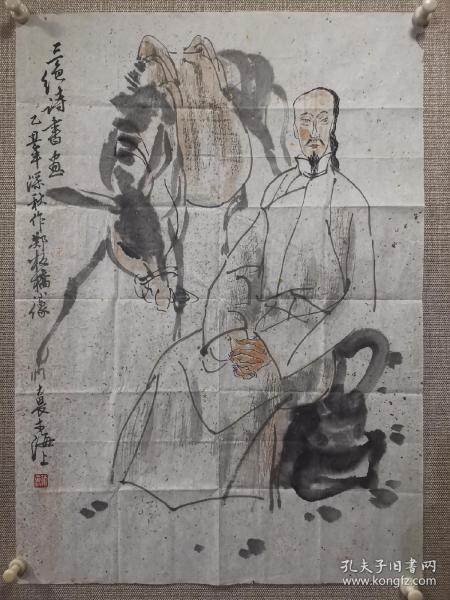 三绝诗书画
乙丑年深秋作郑板桥像
襄于海上
孔夫子旧书网
www.kongfz.com